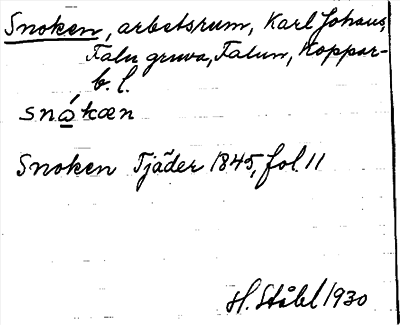 Snoken, arbetsrum, Karl Johans,
Falu gruva, Falun, Koppar-
b. l.
snåkæn
Snoken Tjäder 1845, fol. 11
H. Ståhl 1930